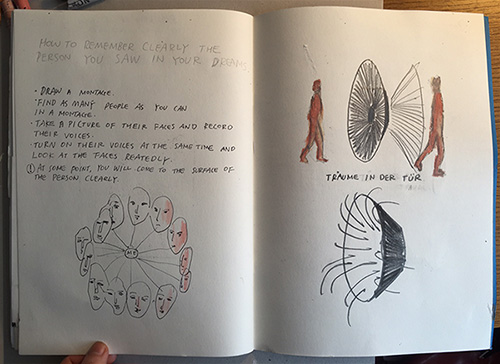 HOW TO REMEMBER CLEARLY THE
PERSON YOU SAW IN YOUR DREAMS.
• DRAW A MONTAGE.
• FIND AS MANY PEOPLE AS YOU CAN
IN A MONTAGE.
• TAKE A PICTURE OF THEIR FACES AND RECORD
THEIR VOICES.
• TURN ON THEIR VOICES AT THE SAME TIME AND
LOOK AT THE FACES REATEDLY.
AS SOME POINT, YOU WILL COME TO THE SURFACE OF
THE PERSON CLEARLY.
TRÄUME IN DER TÜR